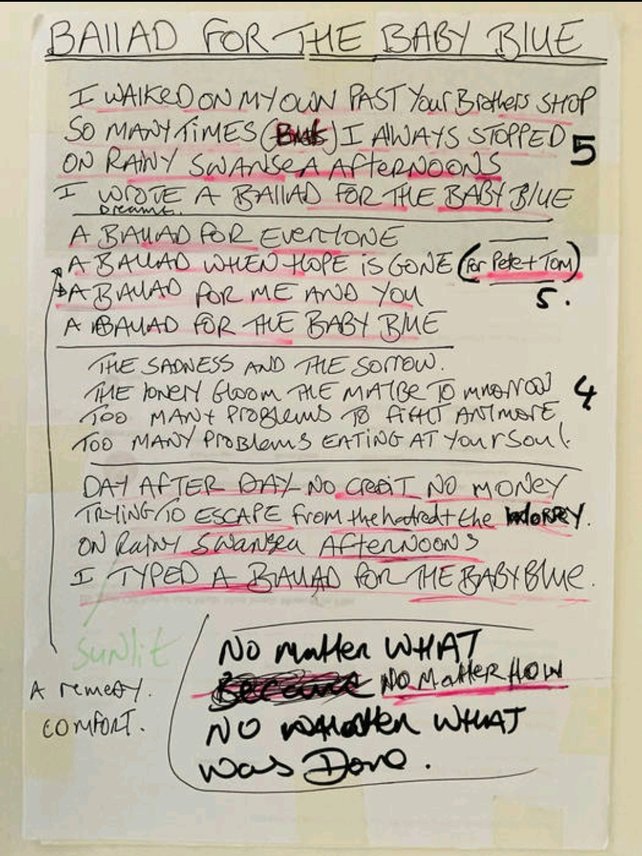 BALLAD FOR THE BABY BLUE
I WALKED ON MY OWN PAST YOUR BROTHERS SHOP
SO MANY TIMES (But) I ALWAYS STOPPED 5
ON RAINY SWANSEA AFTERNOONS
I WROTE A BALLAD FOR THE BABY BLUE
Dreams.
A BALLAD FOR EVERYONE
A BALLAD WHEN HOPE IS GONE (for Pete + Tom)
A BALLAD FOR ME AND YOU 5.
A BALLAD FOR THE BABY BLUE
THE SADNESS AND THE SORROW.
THE lONELY GLOOM THE MAYBE TOMORROW 4
TOO MANY PROBLEMS TO FIGHT ANYMORE
TOO MANY PROBLEMS EATING AT YOUR SOUL.
DAY AFTER DAY NO CREDIT NO MONEY
TRYING TO ESCAPE from the hatred + the WORRY.
ON RAINY SWANSEA AFTERNOONS
I TYPED A BALLAD FOR THE BABY BLUE.
SUNLIT
NO matter WHAT
Became NO MATTER HOW
A remedy.
NO matter WHAT
COMFORT.
was Done.